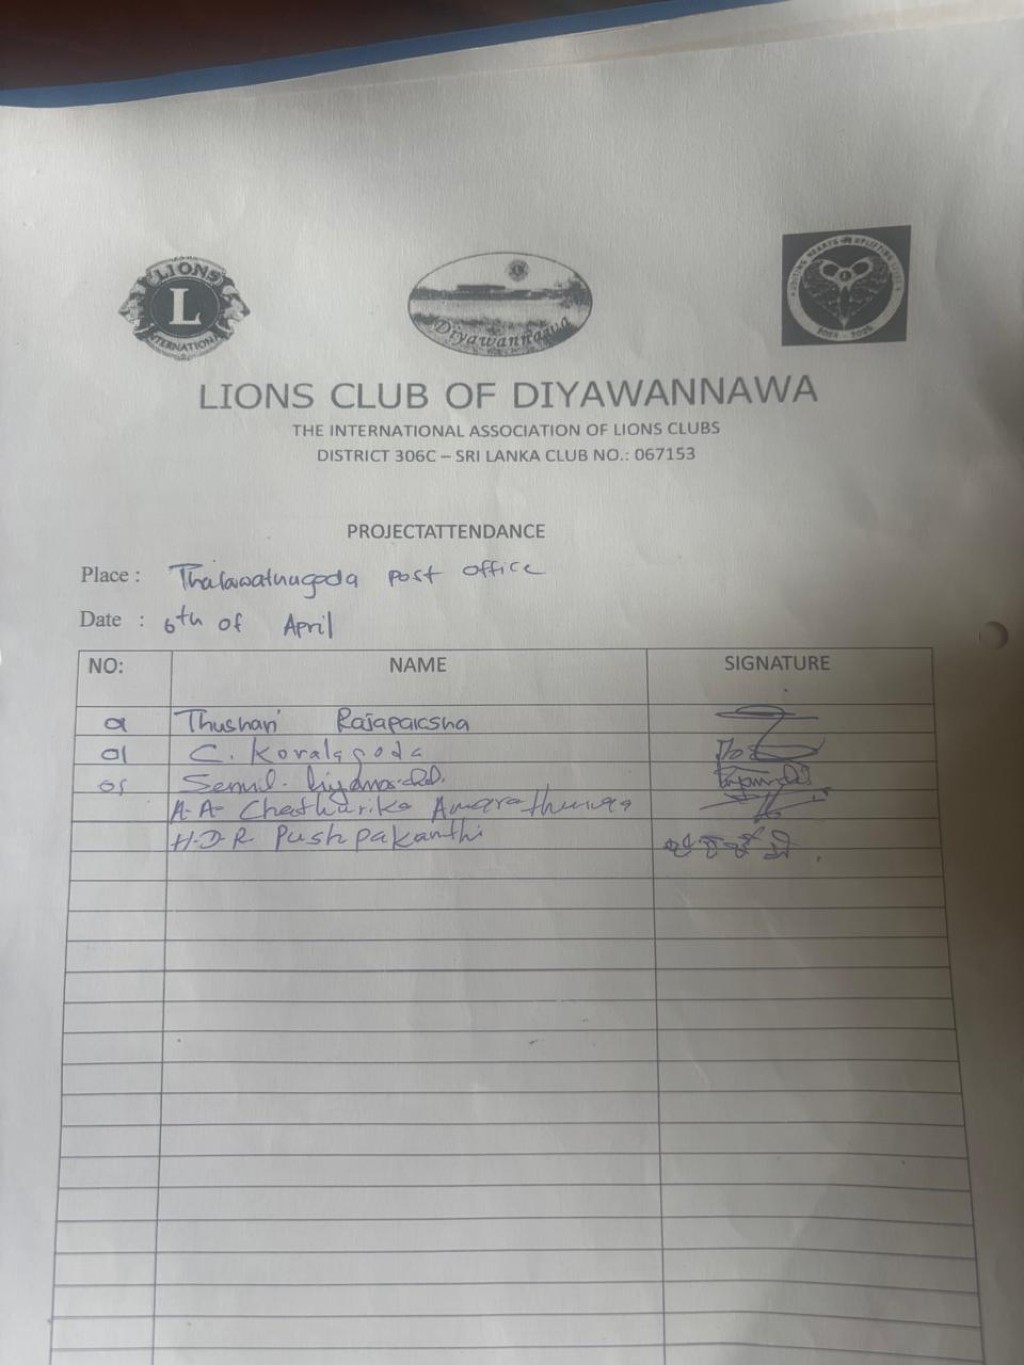 LIONS
L
INTERNATIONAL
Diyawannawa
LIONS CLUB OF DIYAWANNAWA
THE INTERNATIONAL ASSOCIATION OF LIONS CLUBS
DISTRICT 306C – SRI LANKA CLUB NO.: 067153
PROJECTATTENDANCE
Place : Thalawathugoda post office
Date : 6th of April
NO: NAME SIGNATURE
01 Thushari Rajapaksha
01 C. Koralagoda
05 Senul
A.A- Chatharika Amarathunga
H.D.R. Pushpakanthi